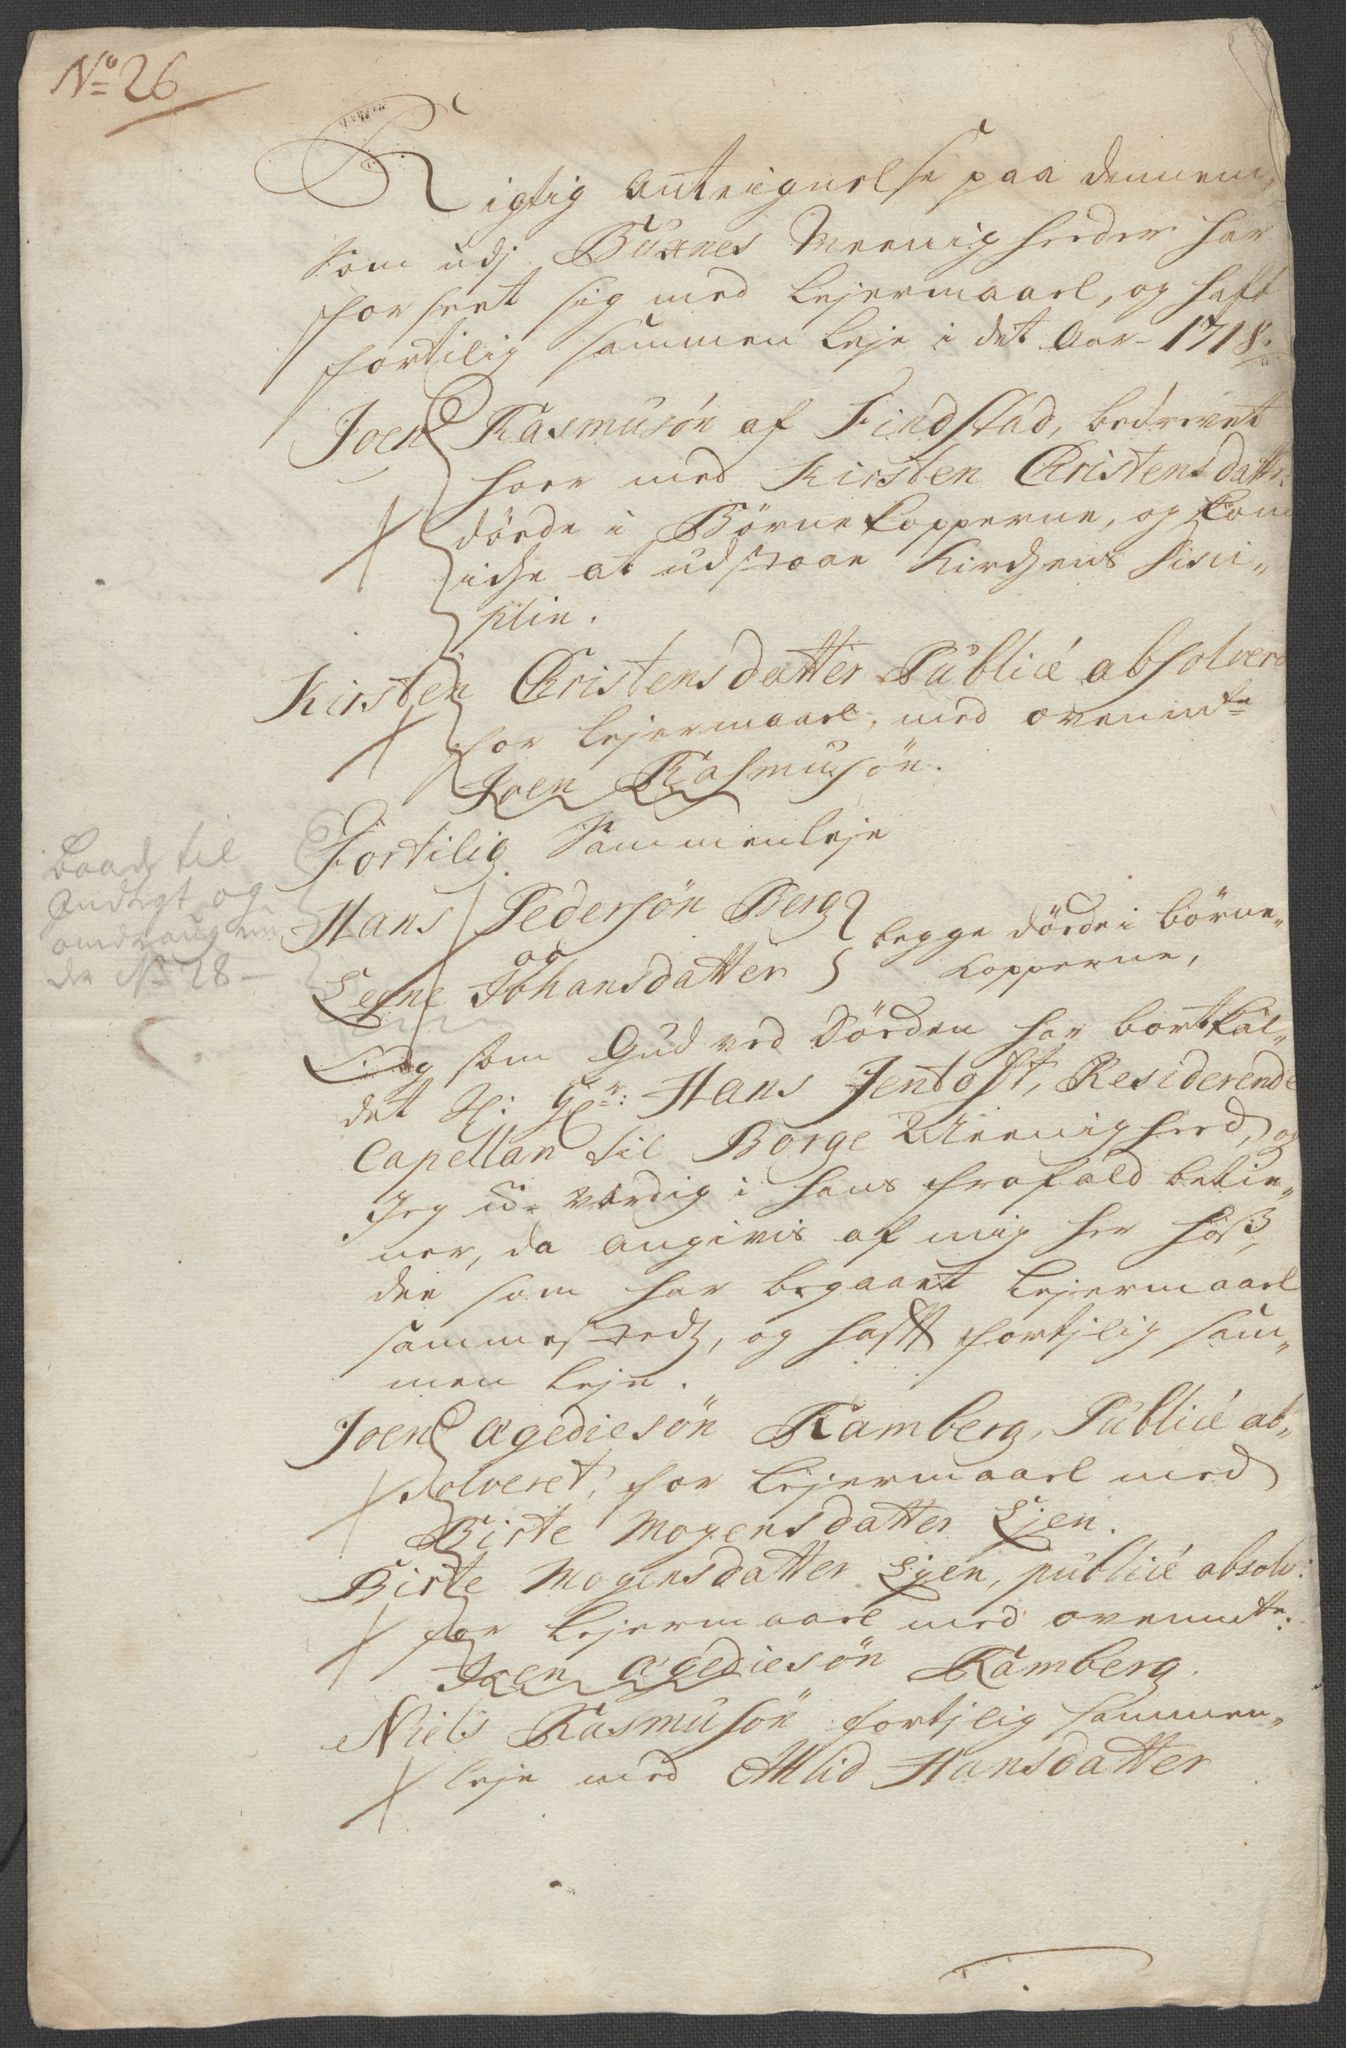 No 26
Rigtig Anteignelse paa dennem,
som udj Buxnes Meenigheeder har
forseet sig med Lejermaael, og hafft
fortilig sammen Leje i det Aar 1718.
Joen Rasmusøn af Findstad, bedrevet
hoer med Kirsten Christensdatter
døede i Børnekopperne, og kom
iche at udstaae Kirchens disci-
plin.
Kirsten Christensdatter Publicé absolveret
for Lejermaael, med ovenmte
Joen Rasmusøn.
Fortilig Sammenleje
Hans Pedersøn Berg
og
Leene Johansdatter
begge døede i børne-
kopperne,
Baade til
Indtegt og
de No 28
Og som Gud ved Døden har bortkal-
det Sl: Hr: Hans Jentoft, Residerende
Capellan til Borge Meenigheed, og
Jeg u-værdig i hans frafald betie-
ner, da angivis af mig her hoß,
dee som har begaaet Lejermaael
sammestedz, og hafft fortjlig sam-
men Leje.
Joen Agediesøn Ramberg, Publicé ab-
solveret, for Lejermaael med
Birte Mogensdatter Ljen.
Birte Mogensdatter Ljen, publicé absolv:
for Lejermaael med ovenmte:
Joen Agediesøn Ramberg.
Niels Rasmusøn fortjlig sammen-
leje med Allid Hansdatter